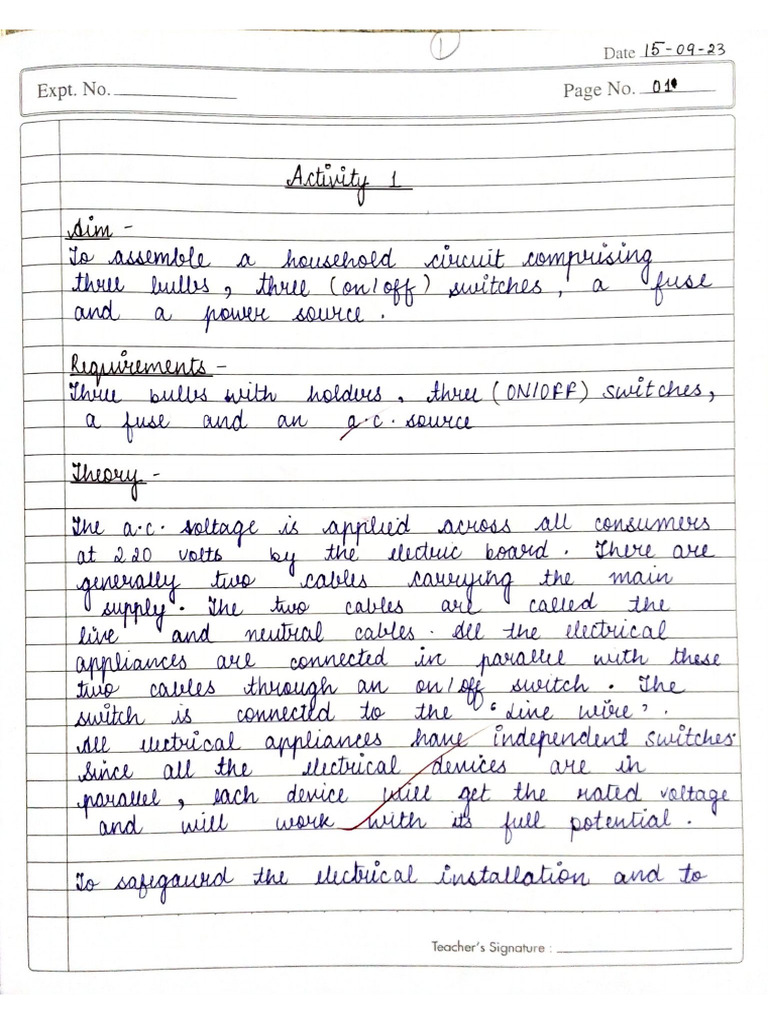 1
Date 15-09-23
Expt. No.
Page No. 01
Activity 1
Aim -
To assemble a household circuit comprising
three bulbs, three (on/off) switches, a fuse
and a power source.
Requirements -
Three bulbs with holders, three (ON/OFF) switches,
a fuse and an a.c. source
Theory -
The a.c. voltage is applied across all consumers
at 220 volts by the electric board. There are
generally two cables carrying the main
supply. The two cables are called the
live and neutral cables. All the electrical
appliances are connected in parallel with these
two cables through an on/off switch. The
switch is connected to the "Line wire".
All electrical appliances have independent switches.
Since all the electrical devices are in
parallel, each device will get the rated voltage
and will work with its full potential.
To safegaurd the electrical installation and to
Teacher's Signature :